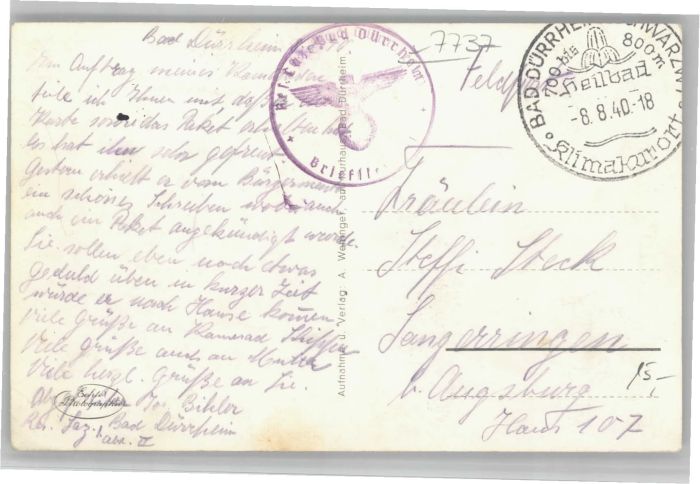 Bad Dürrheim
Im Auftrag meines Kameraden
teile ich Ihnen mit daß
Karte sowie das Paket
es hat ihn sehr gefreut
Gestern erhielt er vom Bürgermeister
ein schönes Schreiben wo auch
auch ein Paket angekündigt wurde.
Sie sollen eben noch etwas
geduld üben in kurzer Zeit
würde er nach Hause kommen
Viele Grüße an Kamerad
Viele Grüße auch an Mutter
Viele herzl. Grüße an Sie.
Jos. Bihler
Res. Laz. Bad Dürrheim
Abt. II
Echte Photographie
Reserve-Lazarett Bad Dürrheim
Briefst
Aufnahme u. Verlag: A. Weininger, am Kurhaus, Bad Dürrheim.
7737
Feldpost
BAD-DÜRRHEIM SCHWARZW.
700 bis 800m
Heilbad
-8.8.40.-18
Klimakurort
Fräulein
Steffi Steck
Langerringen
b. Augsburg
Haus 107
15,-